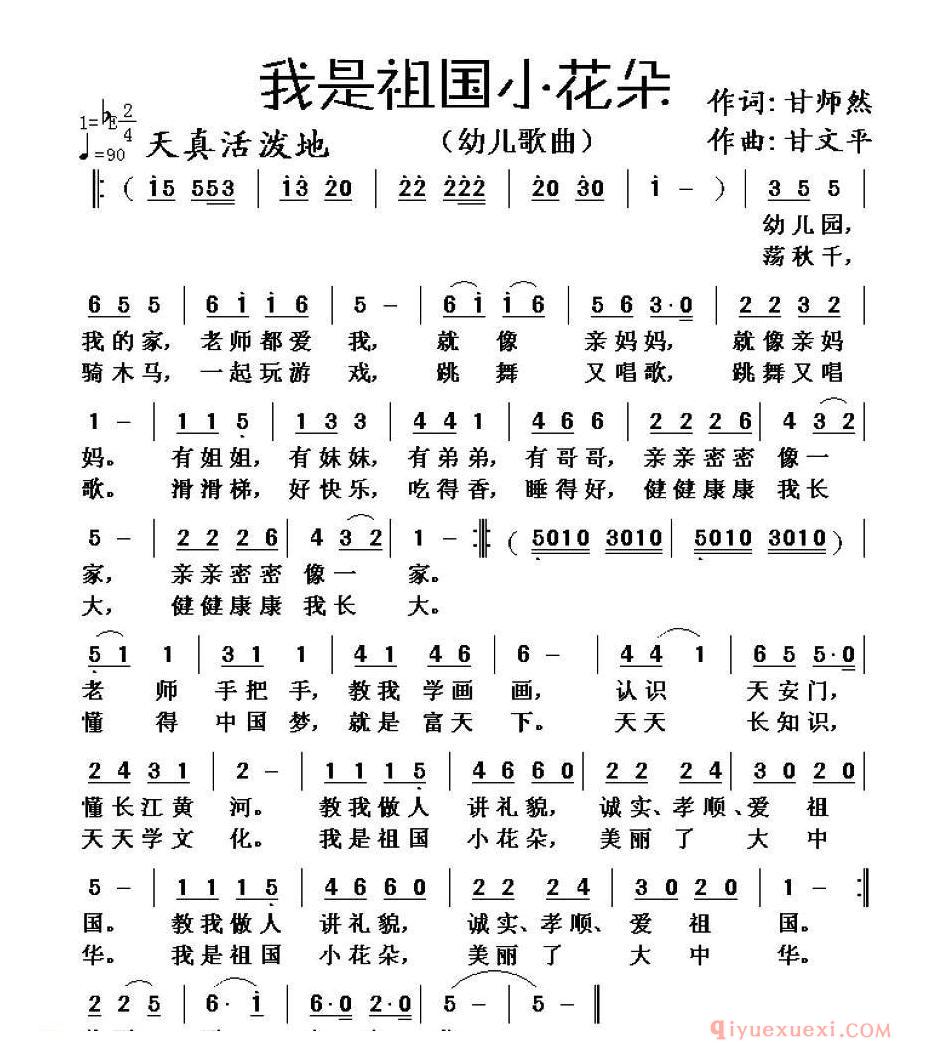 我是祖国小花朵
作词: 甘师然
1=♭E 2/4
♩=90 天真活泼地
（幼儿歌曲）
作曲: 甘文平
‖: ( i5 553 | i3̇ 2̇0 | 2̇2̇ 2̇2̇2̇ | 2̇0 3̇0 | i - ) | 3 5 5 |
幼儿园,
荡秋千,
6 5 5 | 6 i i 6 | 5 - | 6 i i 6 | 5 6 3·0 | 2 2 3 2 |
我的家, 老师都爱 我, 就 像 亲妈妈, 就像亲妈
骑木马, 一起玩游 戏, 跳 舞 又唱歌, 跳舞又唱
1 - | 1 1 5̣ | 1 3 3 | 4 4 1 | 4 6 6 | 2 2 2 6 | 4 3 2 |
妈。 有姐姐, 有妹妹, 有弟弟, 有哥哥, 亲亲密密 像一
歌。 滑滑梯, 好快乐, 吃得香, 睡得好, 健健康康 我长
5 - | 2 2 2 6 | 4 3 2 | 1 - :‖: ( 5̣010 3010 | 5̣010 3010 ) |
家, 亲亲密密 像一 家。
大, 健健康康 我长 大。
5̣ 1 1 | 3 1 1 | 4 1 4 6 | 6 - | 4 4 1 | 6 5 5·0 |
老 师 手把手, 教我 学画 画, 认识 天安门,
懂 得 中国梦, 就是 富天 下。 天天 长知识,
2 4 3 1 | 2 - | 1 1 1 5̣ | 4 6 6 0 | 2 2 2 4 | 3 0 2 0 |
懂长江黄 河。 教我做人 讲礼貌, 诚实、孝顺、爱 祖
天天学文 化。 我是祖国 小花朵, 美丽 了 大 中
5 - | 1 1 1 5̣ | 4 6 6 0 | 2 2 2 4 | 3 0 2 0 | 1 - :‖
国。 教我做人 讲礼貌, 诚实、孝顺、 爱 祖 国。
华。 我是祖国 小花朵, 美丽 了 大 中 华。
2 2 5 | 6· i | 6·0 2·0 | 5 - | 5 - ‖
qiyuexuexi.COM